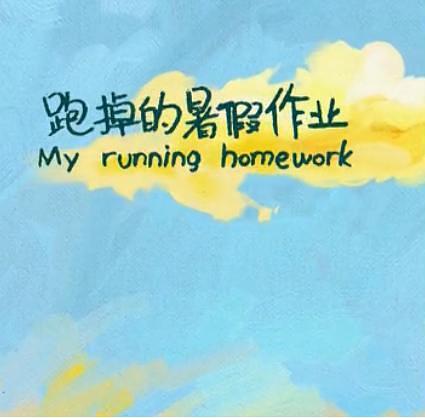 跑掉的暑假作业
My running homework